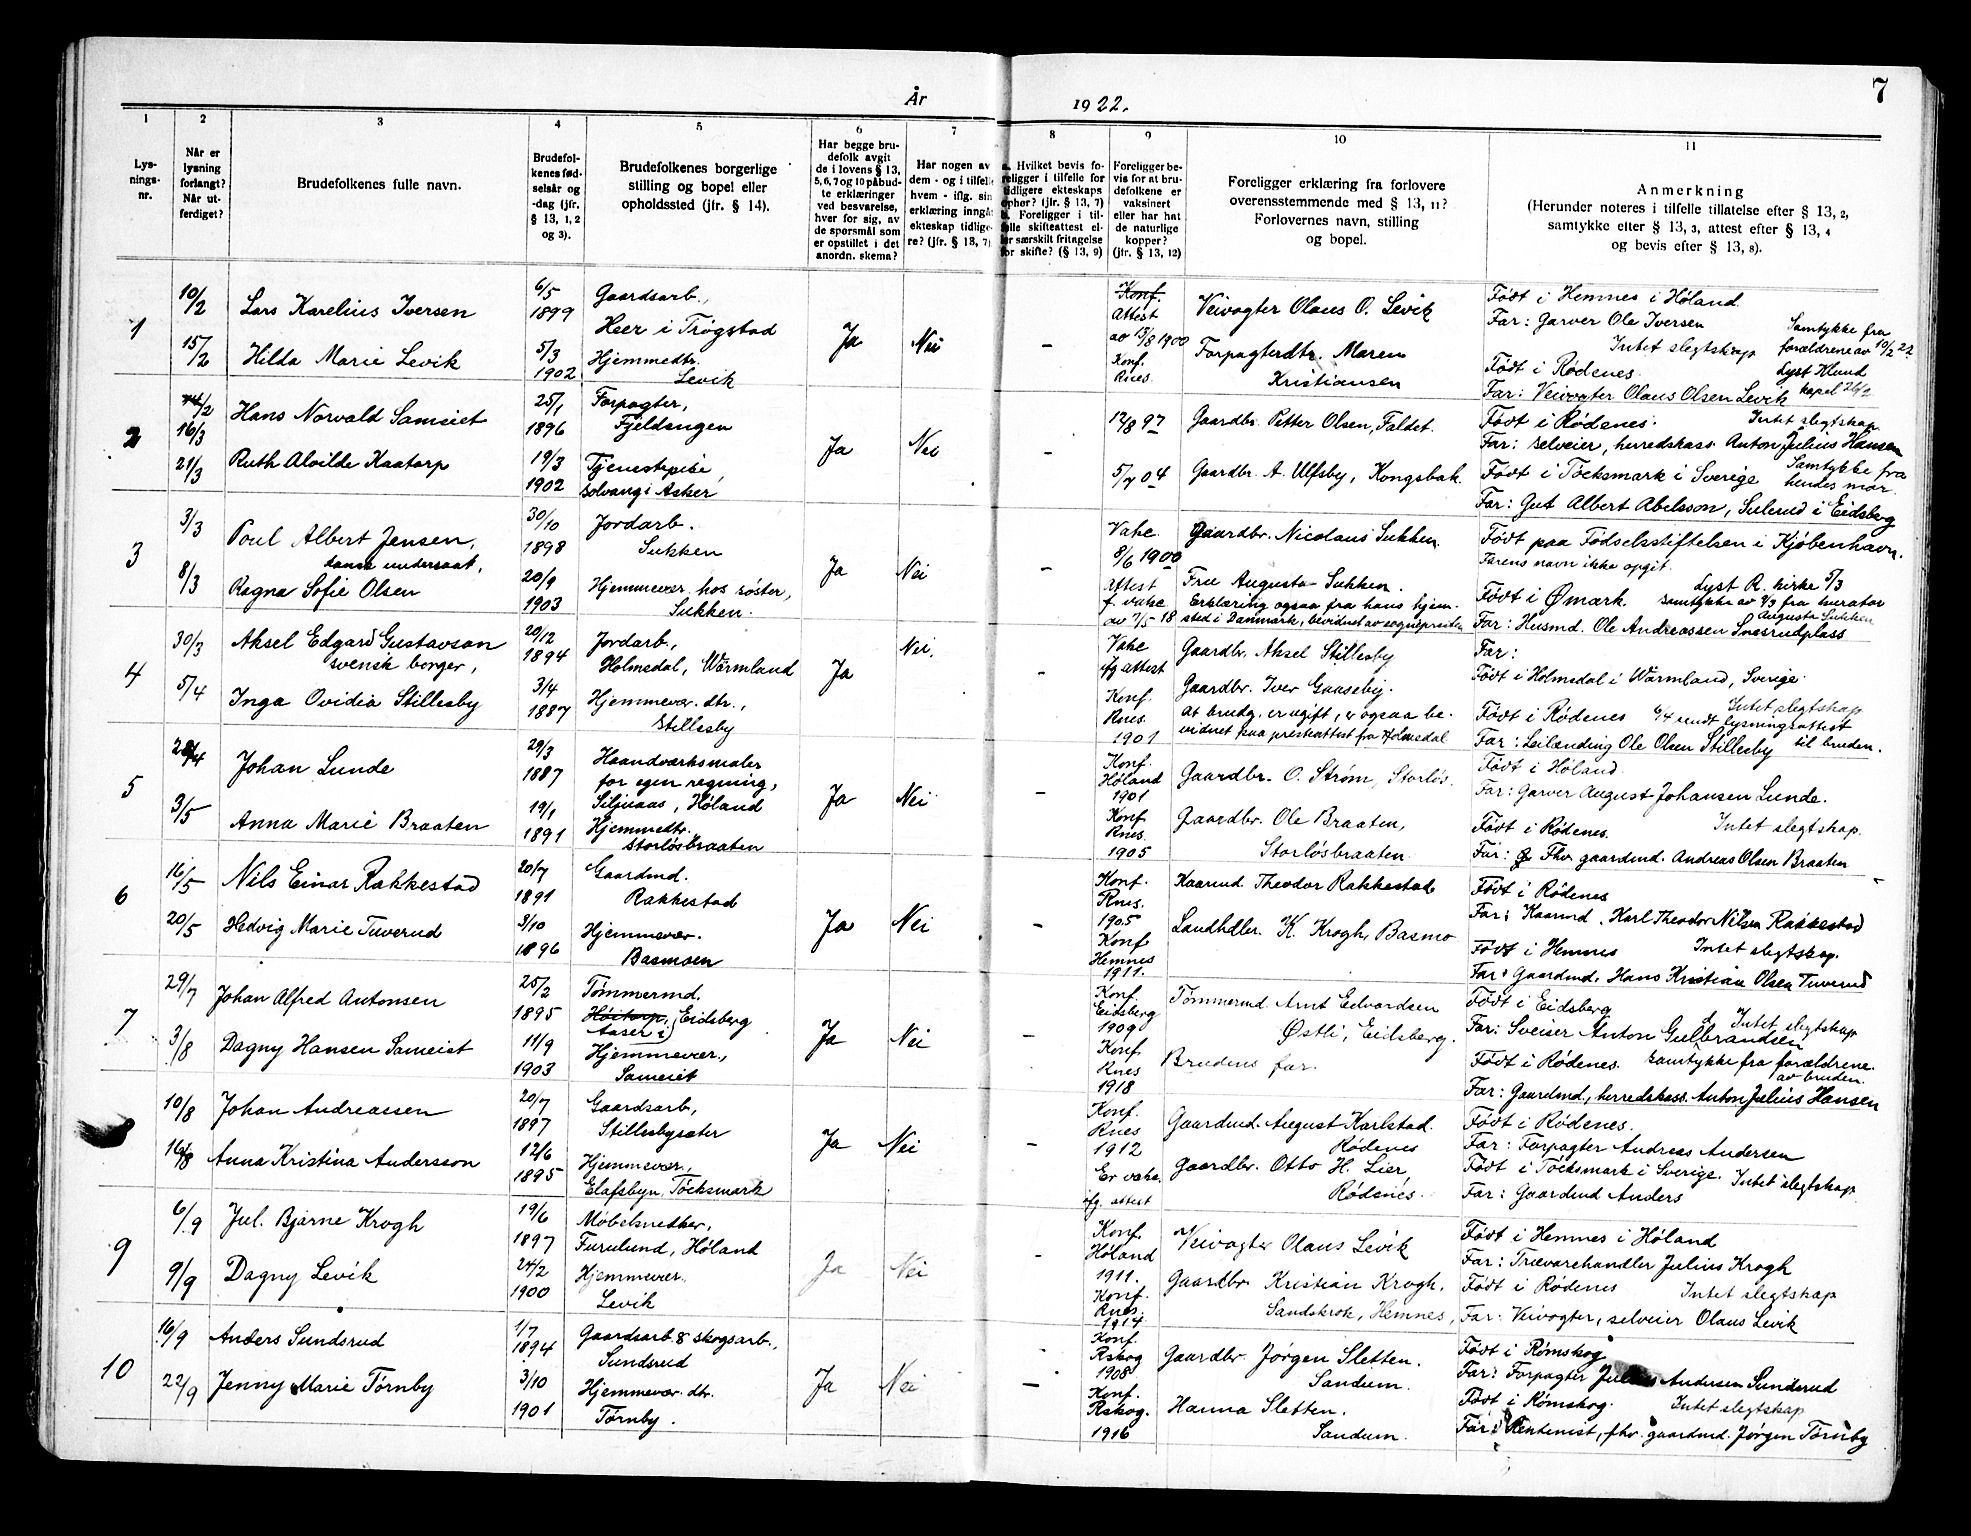 År 1922.
7
1
2
3
4
5
6
7
8
9
10
11
Lys-
nings-
nr.
Når er
lysning
forlangt?
Når ut-
ferdiget?
Brudefolkenes fulle navn.
Brudefol-
kenes fød-
selsår og
-dag (jfr.
§ 13, 1, 2
og 3).
Brudefolkenes borgerlige
stilling og bopel eller
opholdssted (jfr. § 14).
Har begge bru-
defolk avgit
de i lovens § 13,
5, 6, 7 og 10 påbud-
te erklæringer
ved besvarelse,
hver for sig, av
de spørsmål som
er opstillet i det
anordn. skema?
Har nogen av
dem - og i tilfelle
hvem - iflg. sin
erklæring inngåt
ekteskap tidlige-
re? (jfr. § 13, 7)
a. Hvilket bevis fo-
religger i tilfelle for
tidligere ekteskaps
ophør? (jfr. § 13, 7)
b. Foreligger i til-
felle skifteattest el-
ler særskilt fritagelse
for skifte? (§ 13, 9)
Foreligger be-
vis for at bru-
defolkene er
vaksinert
eller har hat
de naturlige
kopper?
(jfr. § 13, 12)
Foreligger erklæring fra forlovere
overensstemmende med § 13, 11?
Forlovernes navn, stilling
og bopel.
Anmerkning
(Herunder noteres i tilfelle tillatelse efter § 13, 2,
samtykke efter § 13, 3, attest efter § 13, 4
og bevis efter § 13, 8).
1
10/2
15/2
Lars Karelius Iversen
Hilda Marie Levik
6/5
1899
5/3
1902
Gaardsarb.,
Heer i Trøgstad
Hjemmedtr.
Levik
Ja
Nei
-
Konf.
Attest
av 13/8 1900
Konf.
Rnes.
Veivogter Olaus O. Levik
Forpagterdtr. Maren
Kristiansen
Født i Hemnes i Høland
Far: Garver Ole Iversen
Intet slegtskap
Samtykke fra
forældrene av 10/2 22
Født i Rødenes.
Lyst Klund
kapel 26/2
Far: Veivogter Olaus Olsen Levik
2
16/3
21/3
Hans Norvald Sameiet
Ruth Alvilde Kaatorp
25/1
1896
19/3
1902
Forpagter,
Fjeldengen
Tjenestepike
Solvang i Asker
Ja
Nei
-
12/8 97
5/7 04
Gaardbr. Petter Olsen, Faldet.
Gaardbr. A. Ulfsby, Kongsbak.
Født i Rødenes.
Intet slegtskap
Far: selveier, herredskass. Anton Julius Hansen
Født i Töcksmark i Sverige
Samtykke fra
hendes mor.
Far: Gut Albert Abelsson, Sulerud i Eidsberg
3
3/3
8/3
Poul Albert Jensen,
dansk undersaat,
Ragna Sofie Olsen
30/10
1898
20/9
1903
Jordarb.
Sukken
Hjemmevær. hos søster,
Sukken.
Ja
Nei
-
Vakc.
8/6 1900
Attest
f. vakc
av 7/5 18
Gaardbr. Nicolaus Sukken.
Fru Augusta Sukken.
Erklæring ogsaa fra hans hjem-
sted i Danmark, bevidnet av sognepresten
Født paa Fødselsstiftelsen i Kjøbenhavn.
Farens navn ikke opgit.
Lyst R. kirke 5/3
Født i Ømark.
Samtykke av 2/3 fra kurator
Augusta Sukken
Far: Husmd. Ole Andreassen Snesrudplass
4
30/3
5/4
Aksel Edgard Gustavson
svensk borger,
Inga Ovidia Stillesby
20/12
1894
3/4
1887
Jordarb.,
Holmedal, Wärmland
Hjemmevær. dtr.,
Stillesby
Ja
Nei.
-
Vakc
ifg attest
Konf.
Rnes.
1901
Gaardbr. Aksel Stillesby
Gaardbr. Iver Gaaseby.
At brudg. er ugift, er ogsaa be-
vidnet paa presteattest fra Holmedal
Far:
Født i Holmedal i Wärmland, Sverige.
Intet slegtskap
Født i Rødenes
6/4 sendt lysningsattest
til bruden.
Far: Leilænding Ole Olsen Stillesby
5
3/5
Johan Lunde
Anna Marie Braaten
29/3
1887
19/1
1891
Haandværksmaler
for egen regning,
Siljuaas, Høland
Hjemmedtr.
Storløsbraaten
Ja
Nei
-
Konf.
Høland
1901
Konf
Rnes.
1905
Gaardbr. O. Strøm, Storløs.
Gaardbr. Ole Braaten,
Storløsbraaten
Født i Høland.
Far: Garver August Johansen Lunde.
Født i Rødenes.
Intet slegtskap.
Far: Fhv. gaardmd. Andreas Olsen Braaten
6
16/5
20/5
Nils Einar Rakkestad
Hedvig Marie Tuverud
20/7
1891
3/10
1896
Gaardmd.
Rakkestad
Hjemmevær.
Basmoen
Ja
Nei
-
Konf.
Rnes.
1905
Konf
Hemnes
1911.
Kaarmd. Theodor Rakkestad
Landhdler. K. Krogh, Basmo
Født i Rødenes
Far: Kaarmd. Karl Theodor Nilsen Rakkestad
Født i Hemnes
Intet slegtskap.
Far: Gaardmd. Hans Kristian Olsen Tuverud
7
29/7
3/8
Johan Alfred Antonsen
Dagny Hansen Sameiet
25/2
1895
11/9
1903
Tømmermd.
Høitorp, Eidsberg
Aaser i
Hjemmevær.,
Sameiet
Ja
Nei
-
Konf
Eidsberg
1909
Konf.
Rnes
1918
Tømmermd. Arnt Edvardsen
Østli, Eidsberg.
Brudens far.
Født i Eidsberg
Intet slegtskap
Far: Sveiser Anton Gulbrandsen
Født i Rødenes.
Samtykke fra forældrene
av bruden.
Far: Gaardmd., herredskass. Anton Julius Hansen
10/8
16/8
Johan Andreassen
Anna Kristina Andersson
20/7
1897
12/6
1895
Gaardsarb.,
Stillesbysæter
Hjemmevær.,
Elafsbyn, Töcksmark
Ja
Nei
-
Konf.
Rnes
1912
Er vakc.
ifg. attest
Gaardmd. August Karlstad.
Rødenes
Gaardbr. Otto H. Lier,
Rødenes.
Født i Rødenes.
Far: Forpagter Andreas Andersen
Født i Töcksmark i Sverige.
Intet slegtskap
Far: Gaardmd Anders
9
6/9
9/9
Jul. Bjarne Krogh
Dagny Levik
19/6
1897
24/2
1900
Møbelsnekker,
Furulund, Høland
Hjemmevær.
Levik
Ja
Nei
-
Konf.
Høland
1911.
Konf.
Rnes.
1914
Veivogter Olaus Levik
Gaardbr. Kristian Krogh,
Sandskrok, Hemnes,
Født i Hemnes i Høland
Far: Trævarehandler Julius Krogh
Født i Rødenes
Intet slegtskap
Far: Veivogter, selveier Olaus Levik
10
16/9
22/9
Anders Sundsrud
Jenny Marie Tørnby
1/7
1894
3/10
1901
Gaardsarb & skogsarb.,
Sundsrud
Hjemmevær. dtr.
Tørnby.
Ja
Nei
-
Konf.
Rskog
1908
Konf.
Rskog.
1916
Gaardbr. Jørgen Sletten.
Sandum.
Hanna Sletten.
Sandum.
Født i Rømskog
Far: Forpagter Andersen Sundsrud
Født i Rømskog.
Intet slegtskap
Far: Rentenist, fhv. gaardmd. Jørgen Tørnby